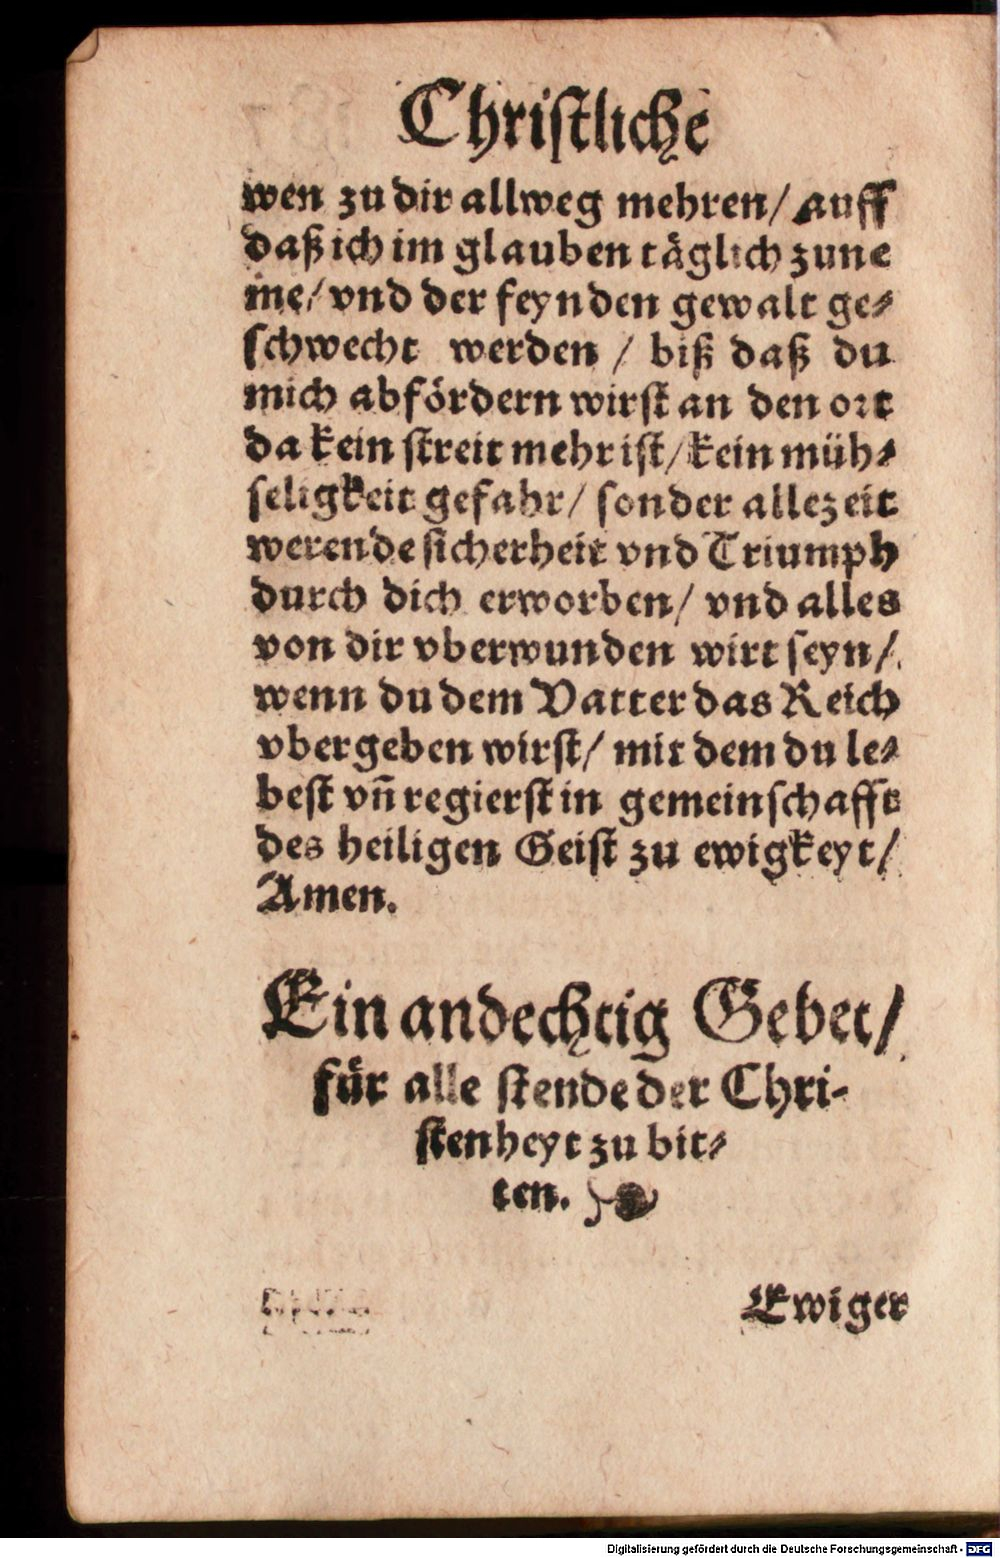 Christliche
wen zu dir allweg mehren / auff
daß ich im glauben täglich zune
me / vnd der feynden gewalt ge⸗
schwecht werden / biß daß du
mich abfördern wirst an den ort
da kein streit mehr ist / kein müh⸗
seligkeit gefahr / sonder allezeit
werende sicherheit vnd Triumph
durch dich erworben / vnd alles
von dir vberwunden wirt seyn /
wenn du dem Vatter das Reich
vbergeben wirst / mit dem du le⸗
best vñ regierst in gemeinschafft
des heiligen Geist zu ewigkeyt /
Amen.
Ein andechtig Gebet /
für alle stende der Chri-
stenheyt zu bit⸗
ten.
Ewiger
Digitalisierung gefördert durch die Deutsche Forschungsgemeinschaft - DFG